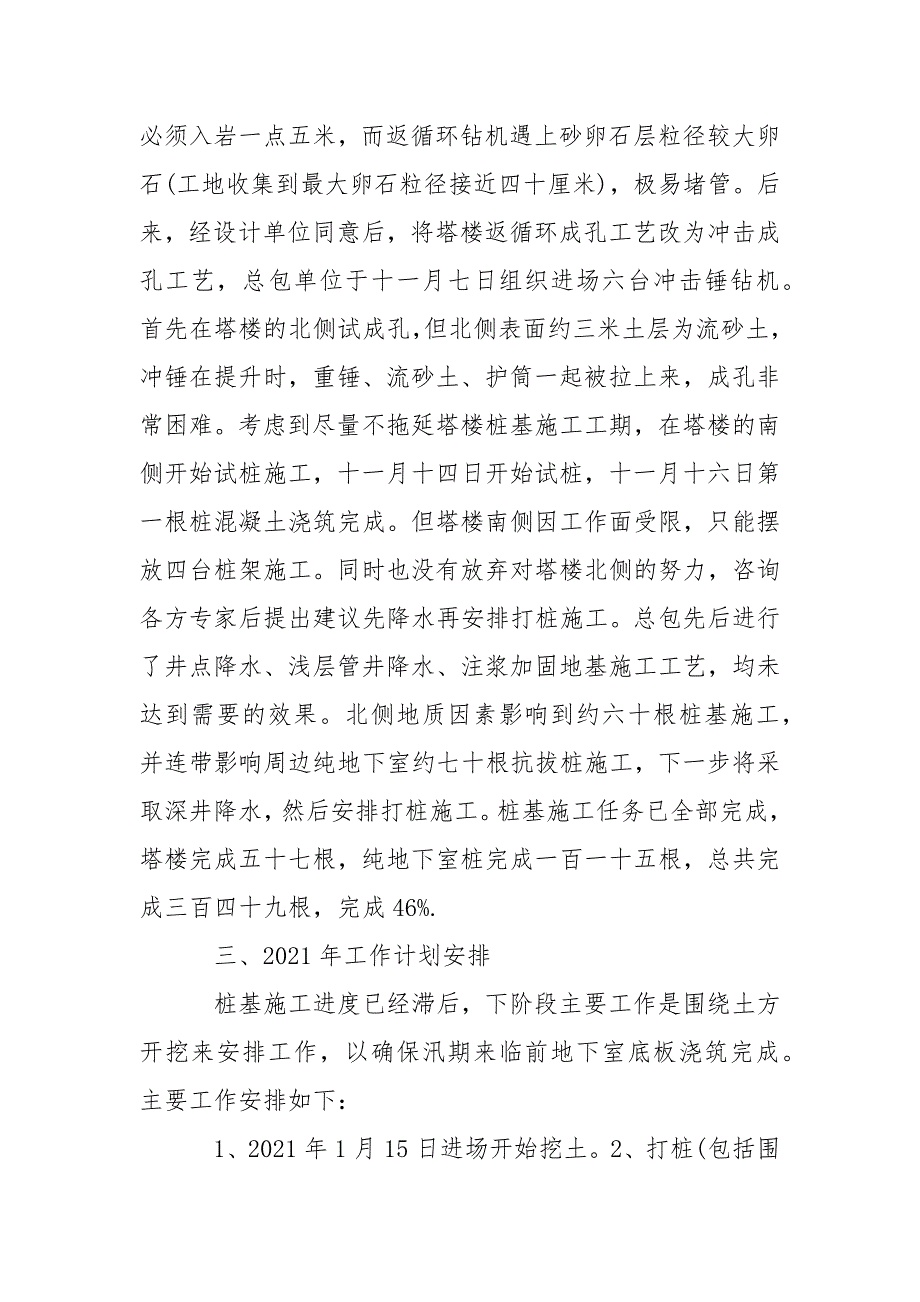 必须入岩一点五米，而返循环钻机遇上砂卵石层粒径较大卵
石(工地收集到最大卵石粒径接近四十厘米)，极易堵管。后
来，经设计单位同意后，将塔楼返循环成孔工艺改为冲击成
孔工艺，总包单位于十一月七日组织进场六台冲击锤钻机。
首先在塔楼的北侧试成孔，但北侧表面约三米土层为流砂土，
冲锤在提升时，重锤、流砂土、护筒一起被拉上来，成孔非
常困难。考虑到尽量不拖延塔楼桩基施工工期，在塔楼的南
侧开始试桩施工，十一月十四日开始试桩，十一月十六日第
一根桩混凝土浇筑完成。但塔楼南侧因工作面受限，只能摆
放四台桩架施工。同时也没有放弃对塔楼北侧的努力，咨询
各方专家后提出建议先降水再安排打桩施工。总包先后进行
了井点降水、浅层管井降水、注浆加固地基施工工艺，均未
达到需要的效果。北侧地质因素影响到约六十根桩基施工，
并连带影响周边纯地下室约七十根抗拔桩施工，下一步将采
取深井降水，然后安排打桩施工。桩基施工任务已全部完成，
塔楼完成五十七根，纯地下室桩完成一百一十五根，总共完
成三百四十九根，完成 46%.
三、2021 年工作计划安排
桩基施工进度已经滞后，下阶段主要工作是围绕土方
开挖来安排工作，以确保汛期来临前地下室底板浇筑完成。
主要工作安排如下：
1、2021 年 1 月 15 日进场开始挖土。2、打桩(包括围